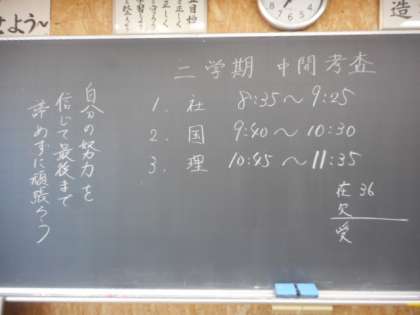 せよう～
二学期 中間考査
1. 社 8:35～9:25
2. 国 9:40～10:30
3. 理 10:45～11:35
在 36
欠
受
自分の努力を
信じて最後まで
諦めずに頑張ろう